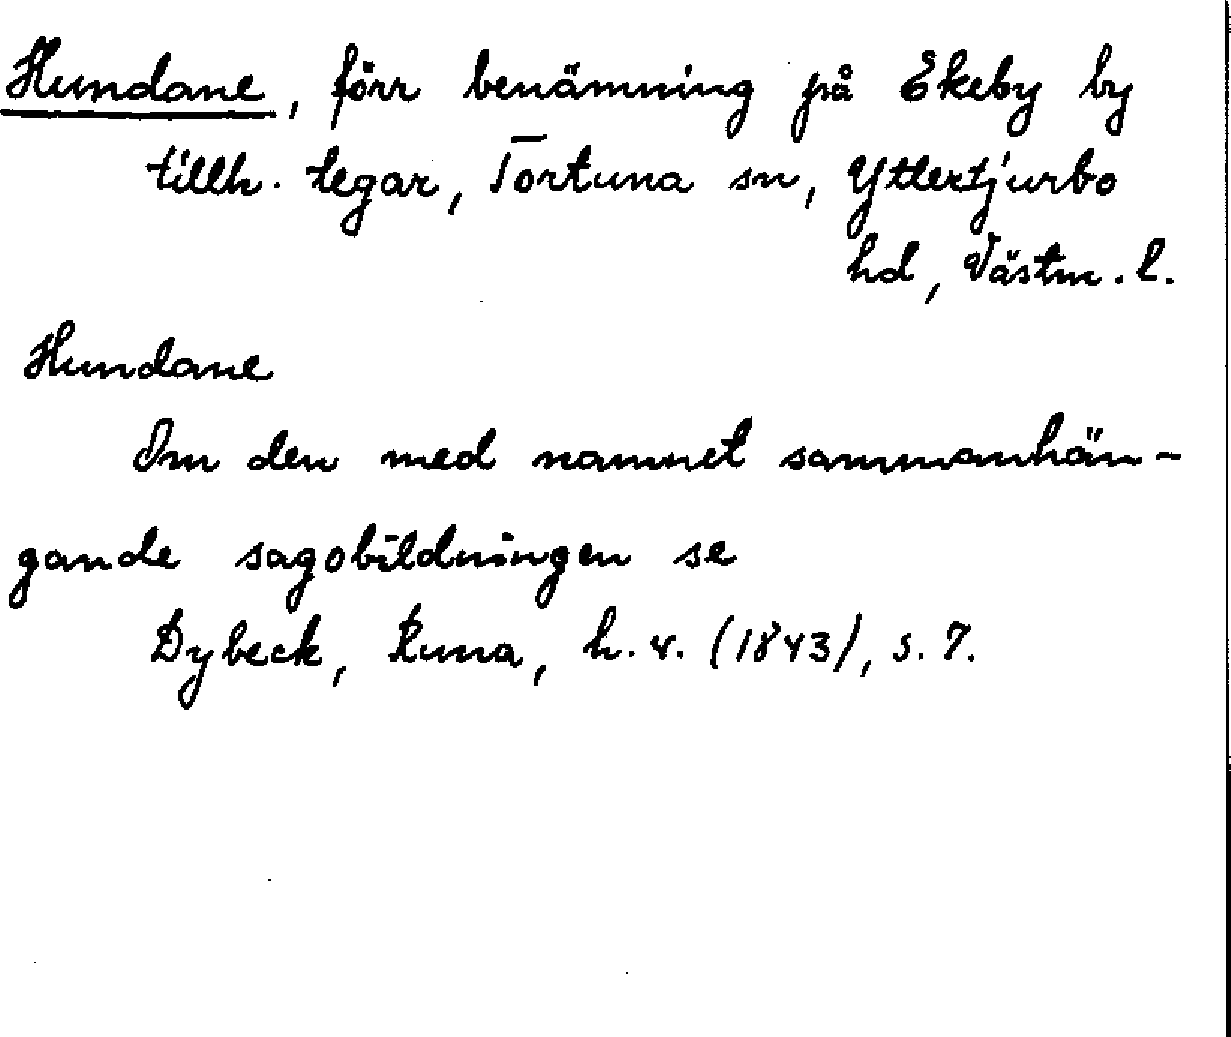 Hundane, förr benämning på Ekeby by
tillh. tegar, Tortuna sn, Yttertjurbo
hd, Västm. l.
Hundane
Om den med namnet sammanhän-
gande sagobildningen se
Dybeck, Runa, h. 4. (1843), s. 7.